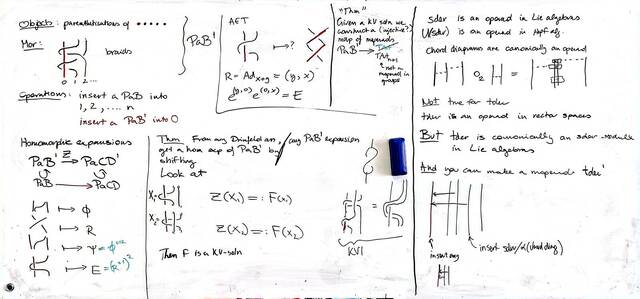 Objects: parenthetizations of
Mor:
braids
0 1 2 ...
Operations: insert a PaB into
1, 2, ... n
insert a PaB' into 0
PaB'
AET
R = Ad
= (y, x)
= E
"Thm"
Given a KV soln we
construct a (injective?)
map of moperads
PaB' →
not a
moperad in
groups
sder is an operad in Lie algebras
U(sder) is an operad in Hopf alg.
chord diagrams are canonically an operad
o₂
=
Not true for tder
tder is an operad in vector spaces
But tder is canonically an sder-module
in Lie algebras
And you can make a moperad tder'
insert any
insert sder/
Homomorphic expansions
PaB' Z→ PaCD'
PaB → PaCD
↦ Φ
↦ R
↦ Ψ =
↦ E =
Thm: From any Drinfeld ass. / any PaB' expansion
get a hom exp of PaB' by
shifting
Look at
X₁ =
Z(X₁) =: F(x₁)
X₂ =
Z(X₂) =: F(x₂)
Then F is a KV-soln
=
KVI